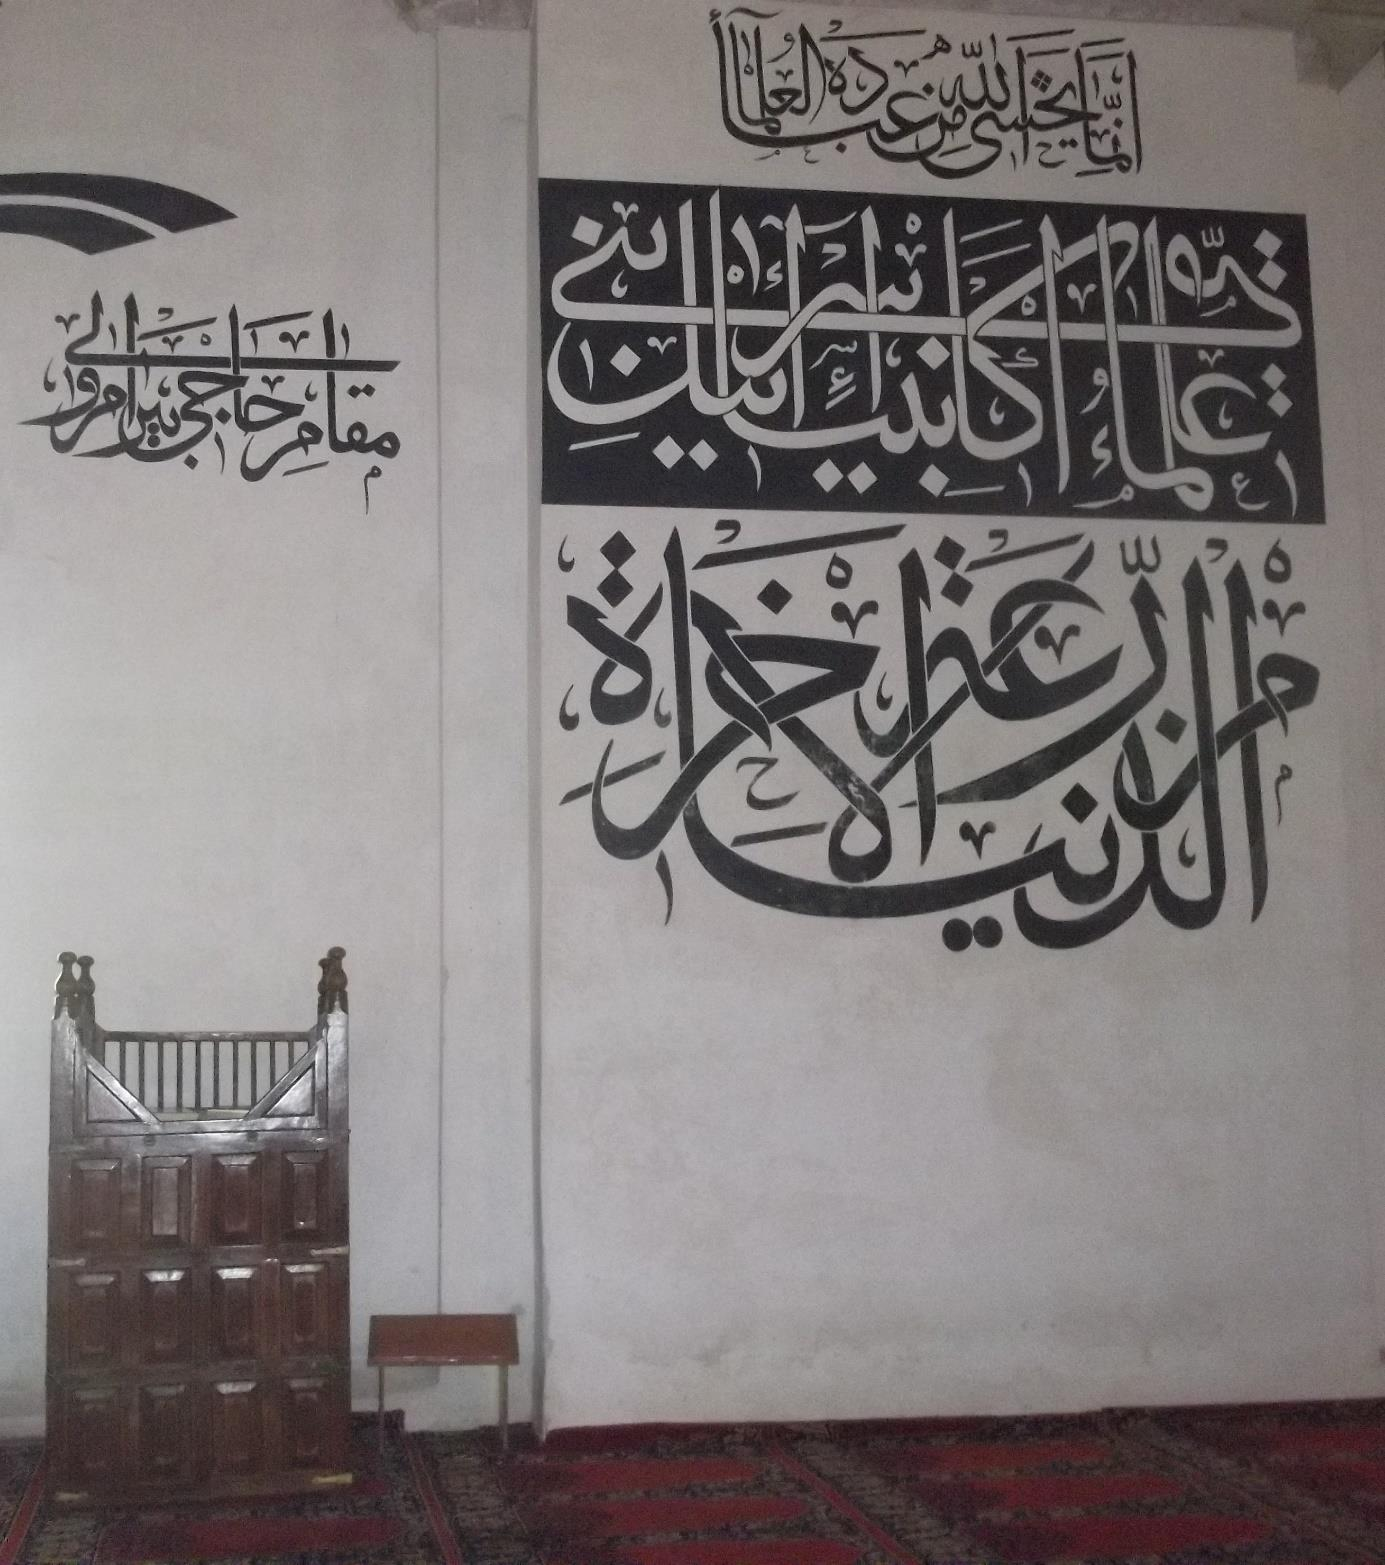 إنما يخشى الله من عباده العلماء
علماء أمتي كأنبياء بني إسرائيل
الدنيا مزرعة الآخرة
مقام حاجي بيرام ولي